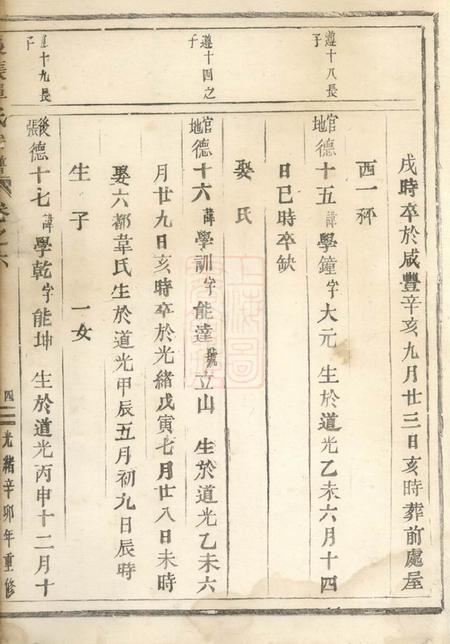 戌時卒於咸豐辛亥九月廿三日亥時葬前處屋
西一秤
遵十八長子
官地德十五諱學鐘字大元 生於道光乙未六月十四
日巳時卒缺
娶氏
遵十四之子
官地德十六諱學訓字能達號立山 生於道光乙未六
月廿九日亥時卒於光緒戊寅七月廿八日未時
娶六都韋氏生於道光甲辰五月初九日辰時
生子 一女
十九長子
後張德十七諱學乾字能坤 生於道光丙申十二月十
卷之六
四
光緒辛卯年重修
上海圖